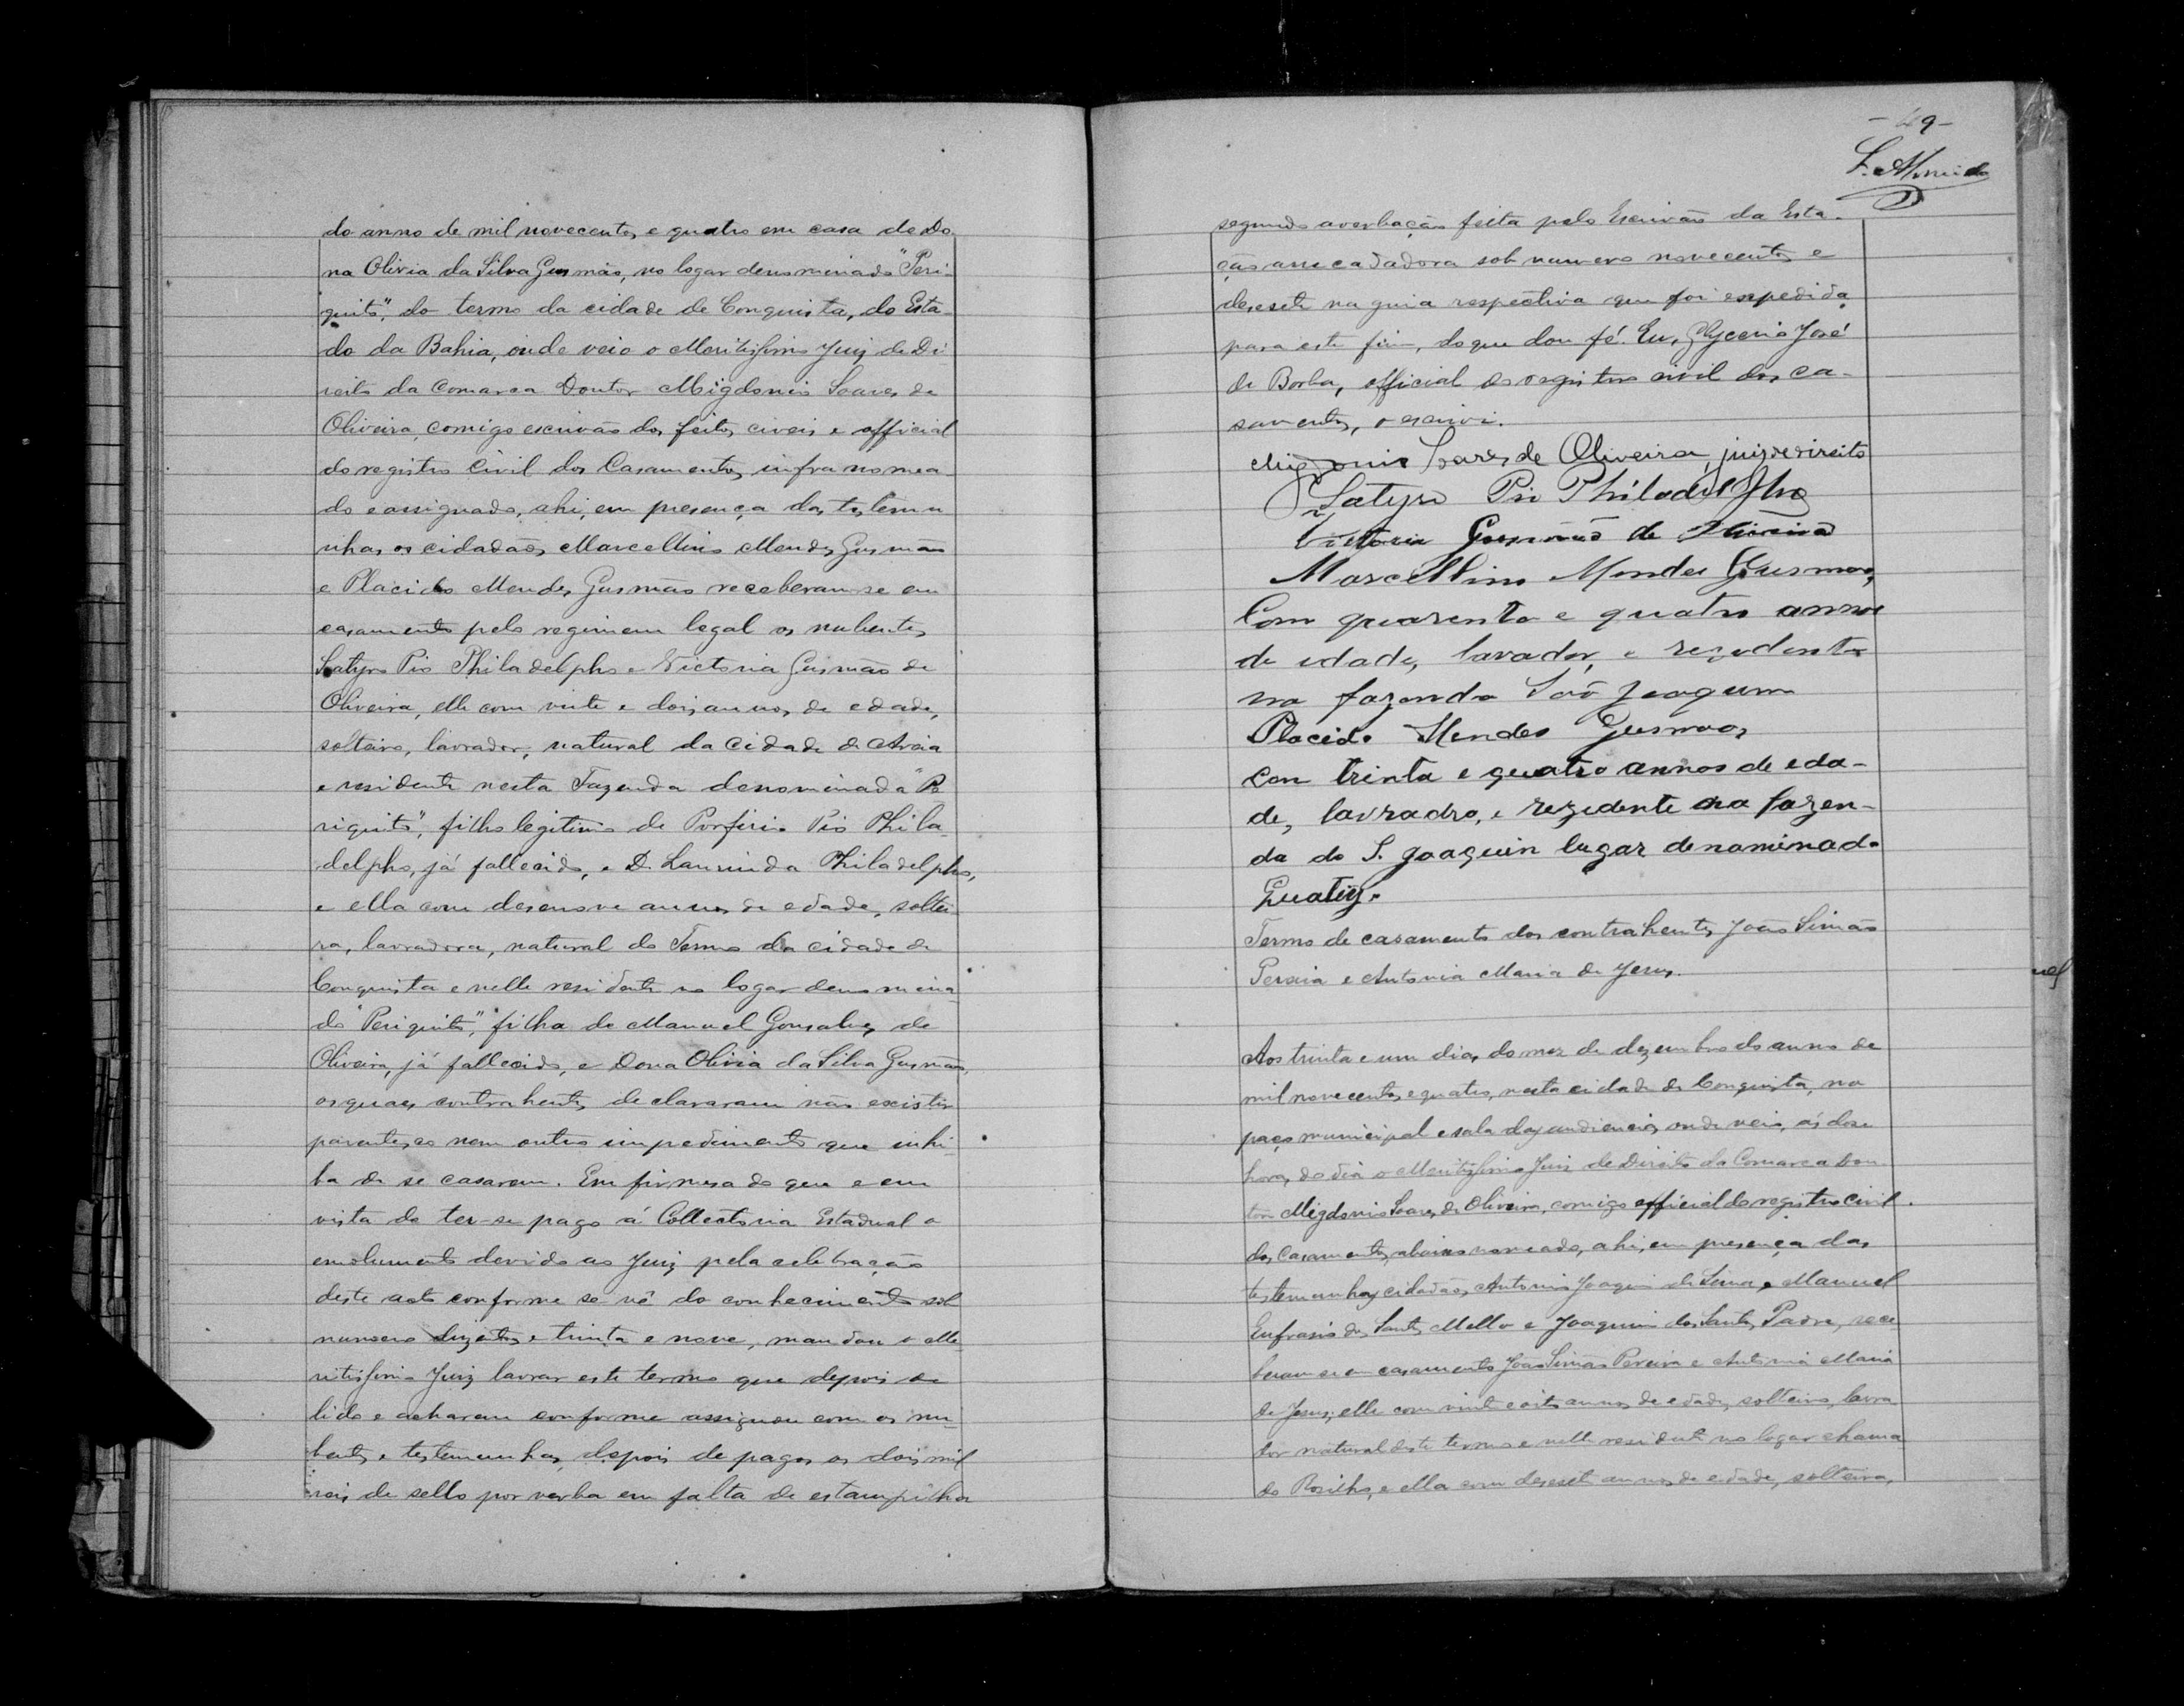 do anno de mil novecentos e quatro em casa de Do-
na Olivia da Silva Gusmão, no logar denominado "Peri-
quito", do termo da cidade de Conquista, do Esta-
do da Bahia, onde veio o Meritissimo Juiz de Di-
reito da Comarca Doutor Migdonio Soares de
Oliveira, comigo escrivão dos feitos civeis e official
do registro Civil dos Casamentos, infra nomea-
do e assignado, ahi, em presença das testemu-
nhas os cidadãos Marcellino Mendes Gusmão
e Placido Mendes Gusmão receberam-se em
casamento pelo regimem legal os nubentes
Satyro Pio Philadelpho e Victoria Gusmão de
Oliveira, elle com vinte e dois annos de edade,
solteiro, lavrador, natural da Cidade de Areia
e residente nesta Fazenda denominada "Pe
riquito", filho legitimo de Porfirio Pio Phila-
delpho, já fallecido, e D. Laurinda Philadelpho,
e ella com desenove annos de edade, soltei-
ra, lavradora, natural do Termo da cidade de
Conquista e nelle residente no logar denomina-
do "Periquito", filha de Manuel Gonsalves de
Oliveira, já fallecido, e Dona Olivia da Silva Gusmão,
os quaes contrahentes declararam não existir
parentesco nem outro impedimento que inhi-
ba de se casarem. Em firmesa do que e em
vista de ter-se pago á Collectoria Estadual o
emolumento devido ao Juiz pela celebração
deste acto conforme se vê do conhecimento sob
numero duzentos e trinta e nove, mandou o Me-
ritissimo Juiz lavrar este termo que depois de
lido e acharem conforme assignou com os nu-
bentes e testemunhas, depois de pagos os dois mil
reis de sello por verba em falta de estampilha
- 49 -
S. Almeida
segundo averbação feita pelo Escrivão da Esta-
ção arrecadadora sob numero novecentos e
desesete na guia respectiva que foi expedida
para este fim, do que dou fé. Eu, Glycerio José
de Borba, official do registro civil dos ca-
samentos, o escrivi.
Migdonio Soares de Oliveira, juiz de direito
Satyro Pio Philadelpho
Victoria Gusmão de Oliveira
Marcellino Mendes Gusmão,
Com quarenta e quatro annos
de edade, lavador, e rezedente
na fazenda São Joaquim
Placido Mendes Gusmao,
con trinta e quatro annos de eda-
de, lavradro, e rezedente na fazen-
da do S. Joaquin lugar denominado
Termo de casamento dos contrahentes João Simão
Pereira e Antonia Maria de Jesus.
Aos trinta e um dias do mez de dezembro do anno de
mil novecentos e quatro, nesta cidade de Conquista, no
paço municipal e sala das audiencias onde veio, ás dose
horas do dia o Meritissimo Juiz de Direito da Comarca Dou-
tor Migdonio Soares de Oliveira, comigo official do registro civil
dos Casamentos, abaixo nomeado, ahi, em presença das
testemunhas cidadãos Antonio Joaquim de Lima, e Manuel
Eufrasio dos Santos Mello e Joaquim dos Santos Padre, rece
beram-se em casamento João Simão Pereira e Antonia Maria
de Jesus; elle com vinte e oito annos de edade, solteiro, lavra
dor natural deste termo e nelle residente no logar chama
do Rosilho, e ella com desesete annos de edade, solteira,